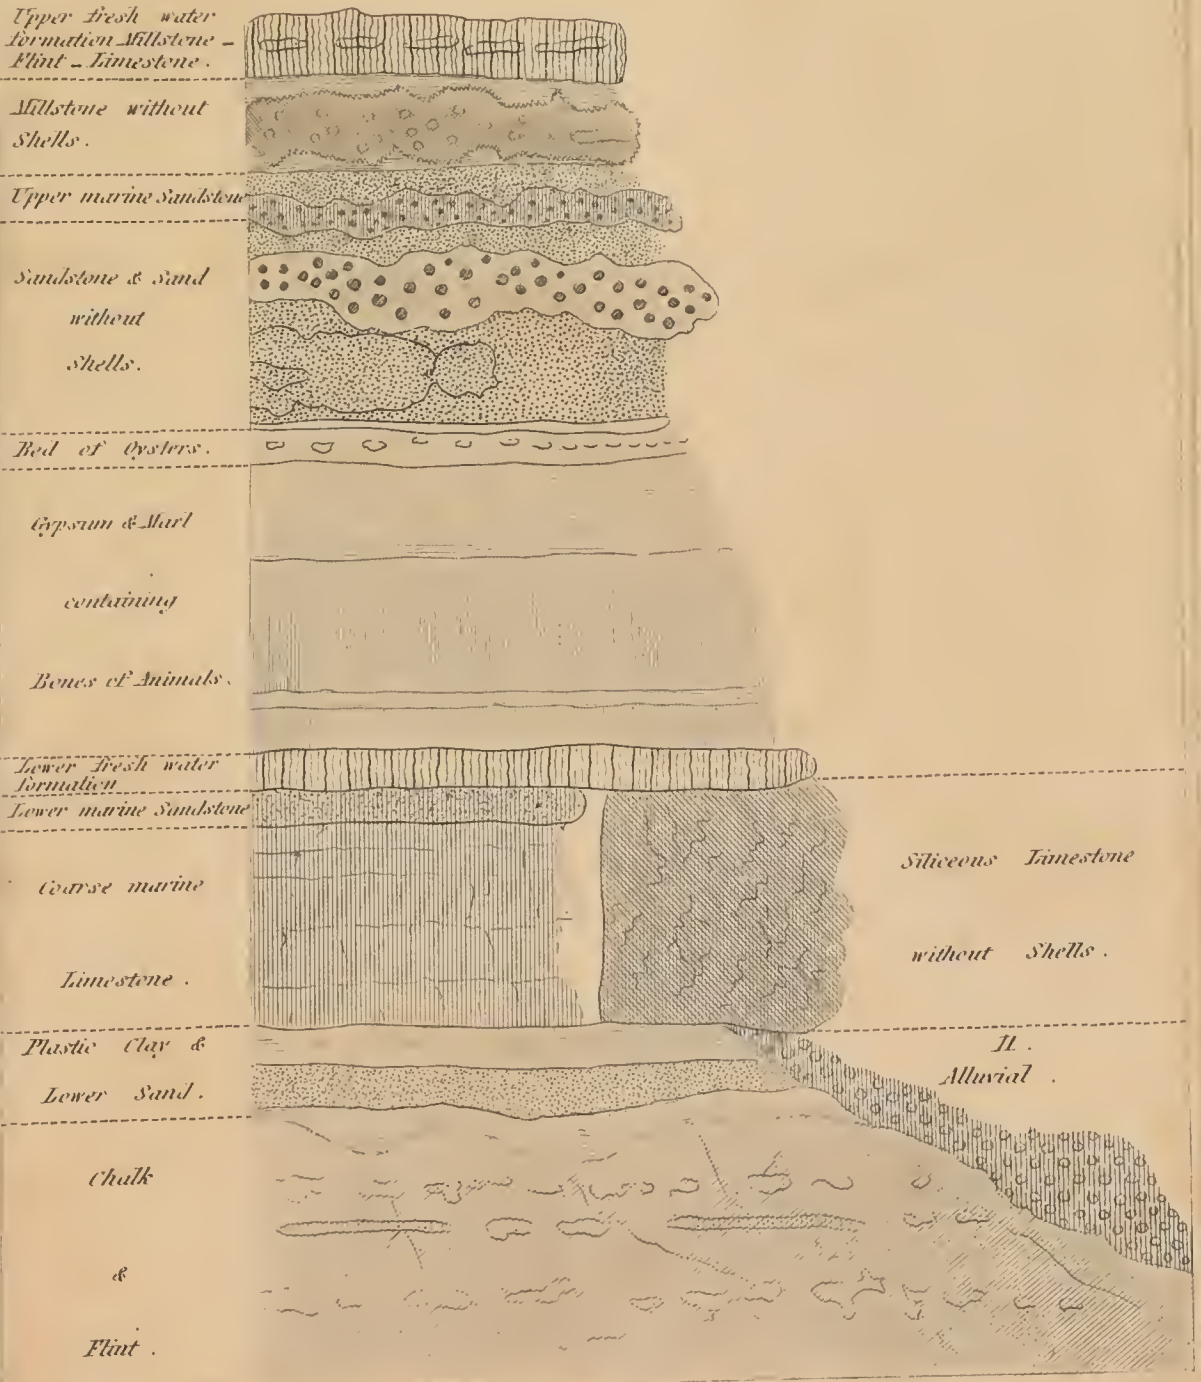 Upper fresh water
formation Millstone -
Flint - Limestone.
Millstone without
Shells.
Upper marine Sandstone
Sandstone & Sand
without
Shells.
Bed of Oysters.
Gypsum & Marl
containing
Bones of Animals.
Lower fresh water
formation
Lower marine Sandstone
Coarse marine
Limestone.
Siliceous Limestone
without Shells.
Plastic Clay &
Lower Sand.
11.
Alluvial.
Chalk
&
Flint.